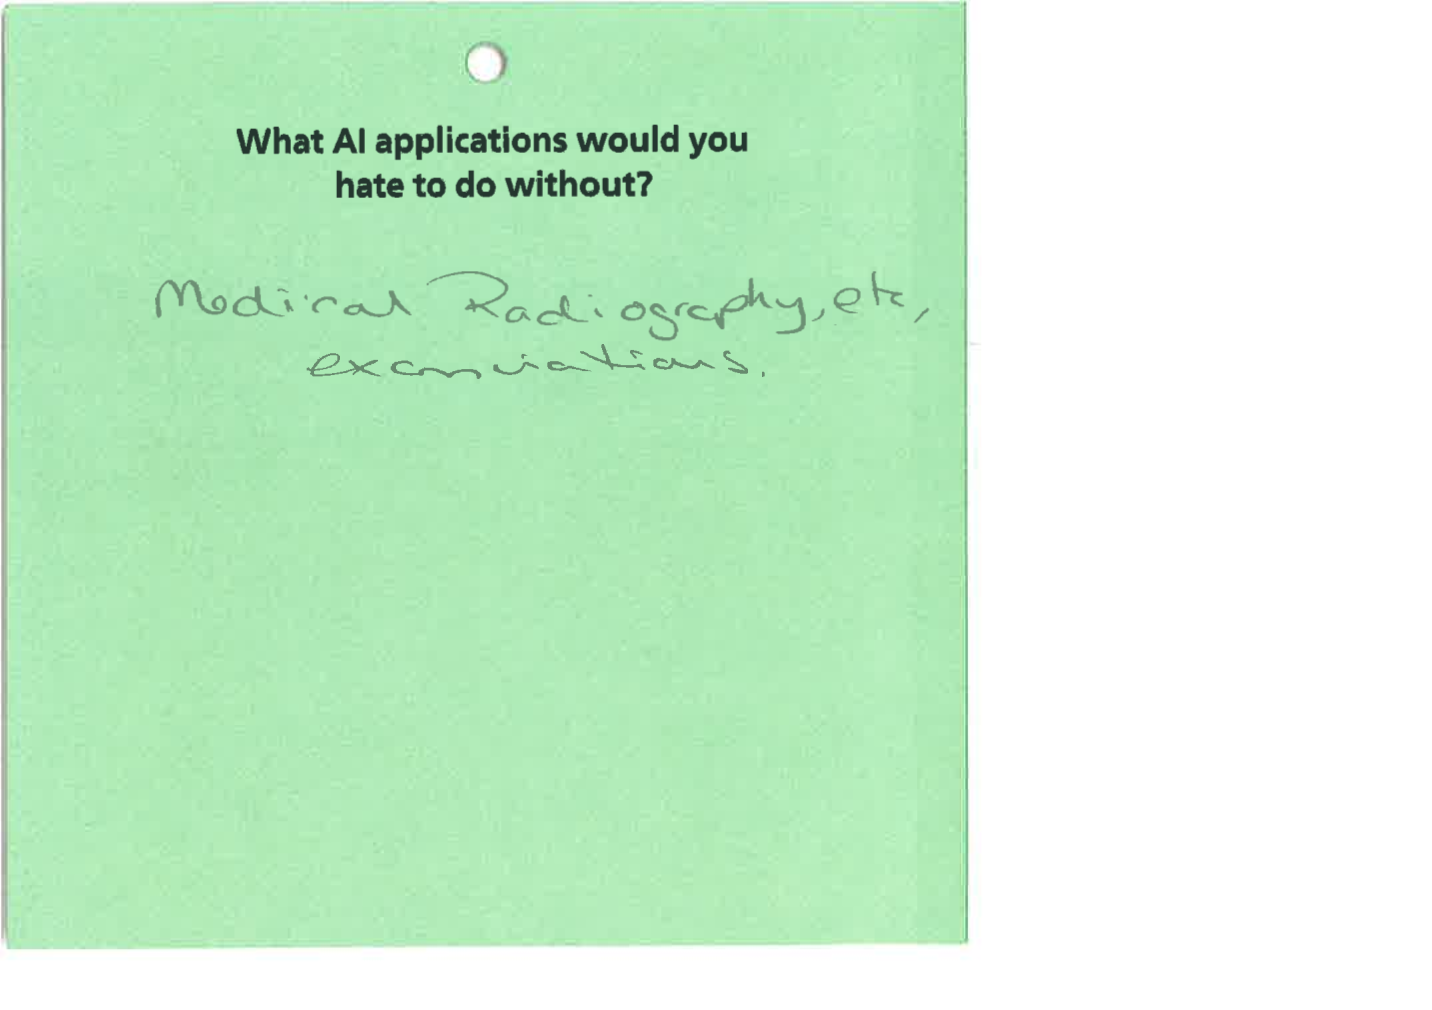 What AI applications would you
hate to do without?
Medical Radiography, etc,
examinations.